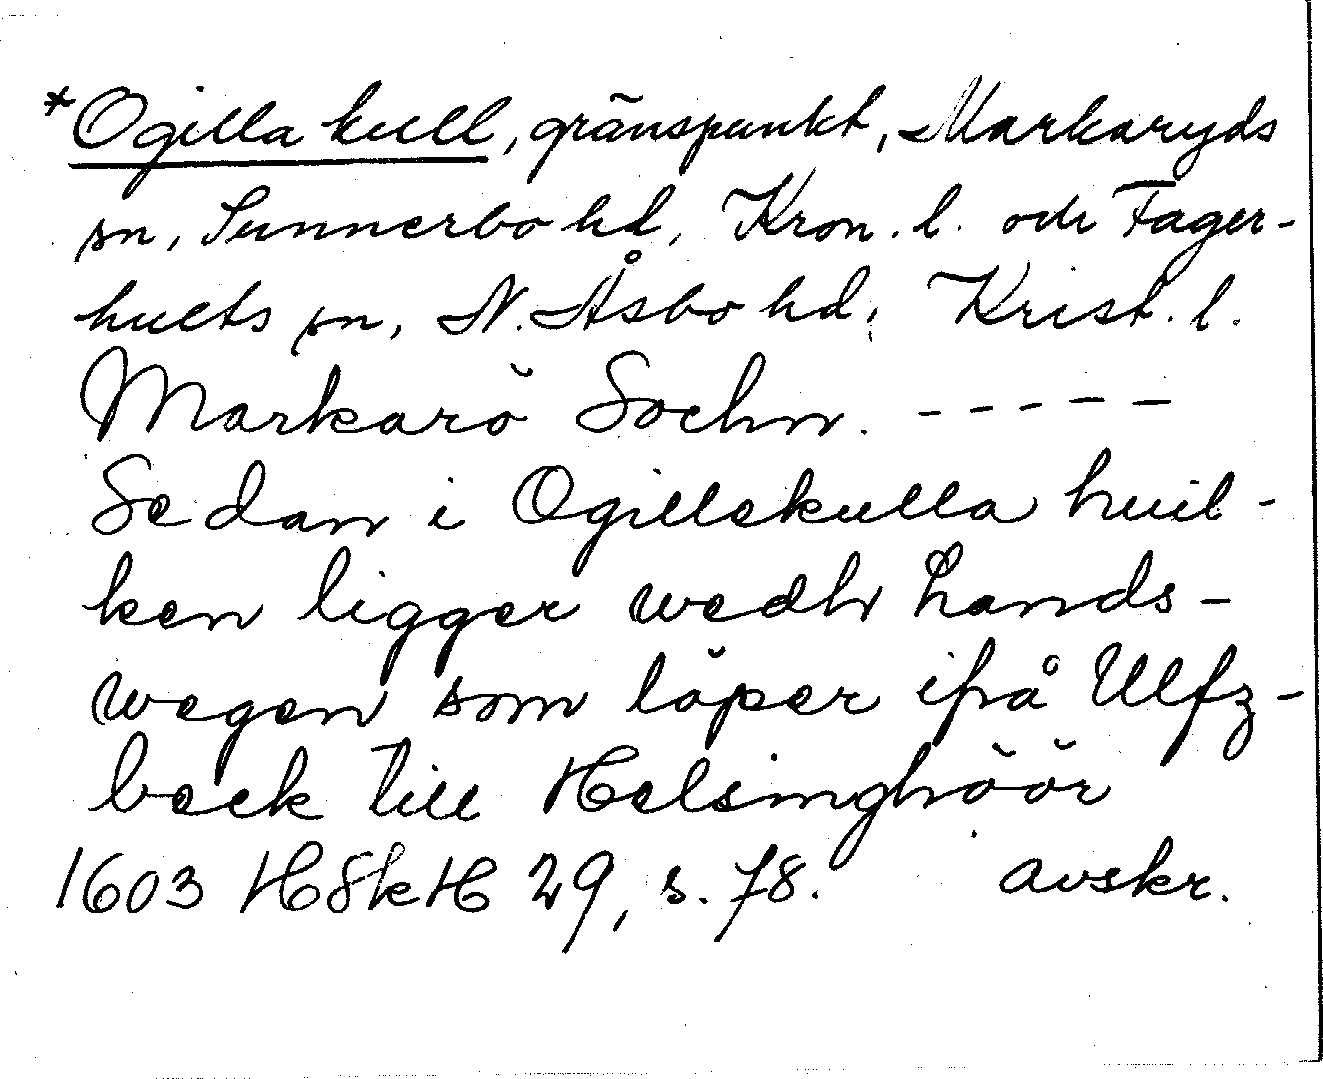 *Ogilla kull, gränspunkt, Markaryds
sn, Sunnerbo hd, Kron. l. och Fager-
hults sn, N. Åsbo hd, Krist. l.
Markarö Sochn. - - - - -
Sedan i Ogillekulla huil-
ken ligger wedh Lands-
wegen som löper ifrå Ulfz-
beck till Helsinghöör
1603 HSkH 29, s. 78. avskr.